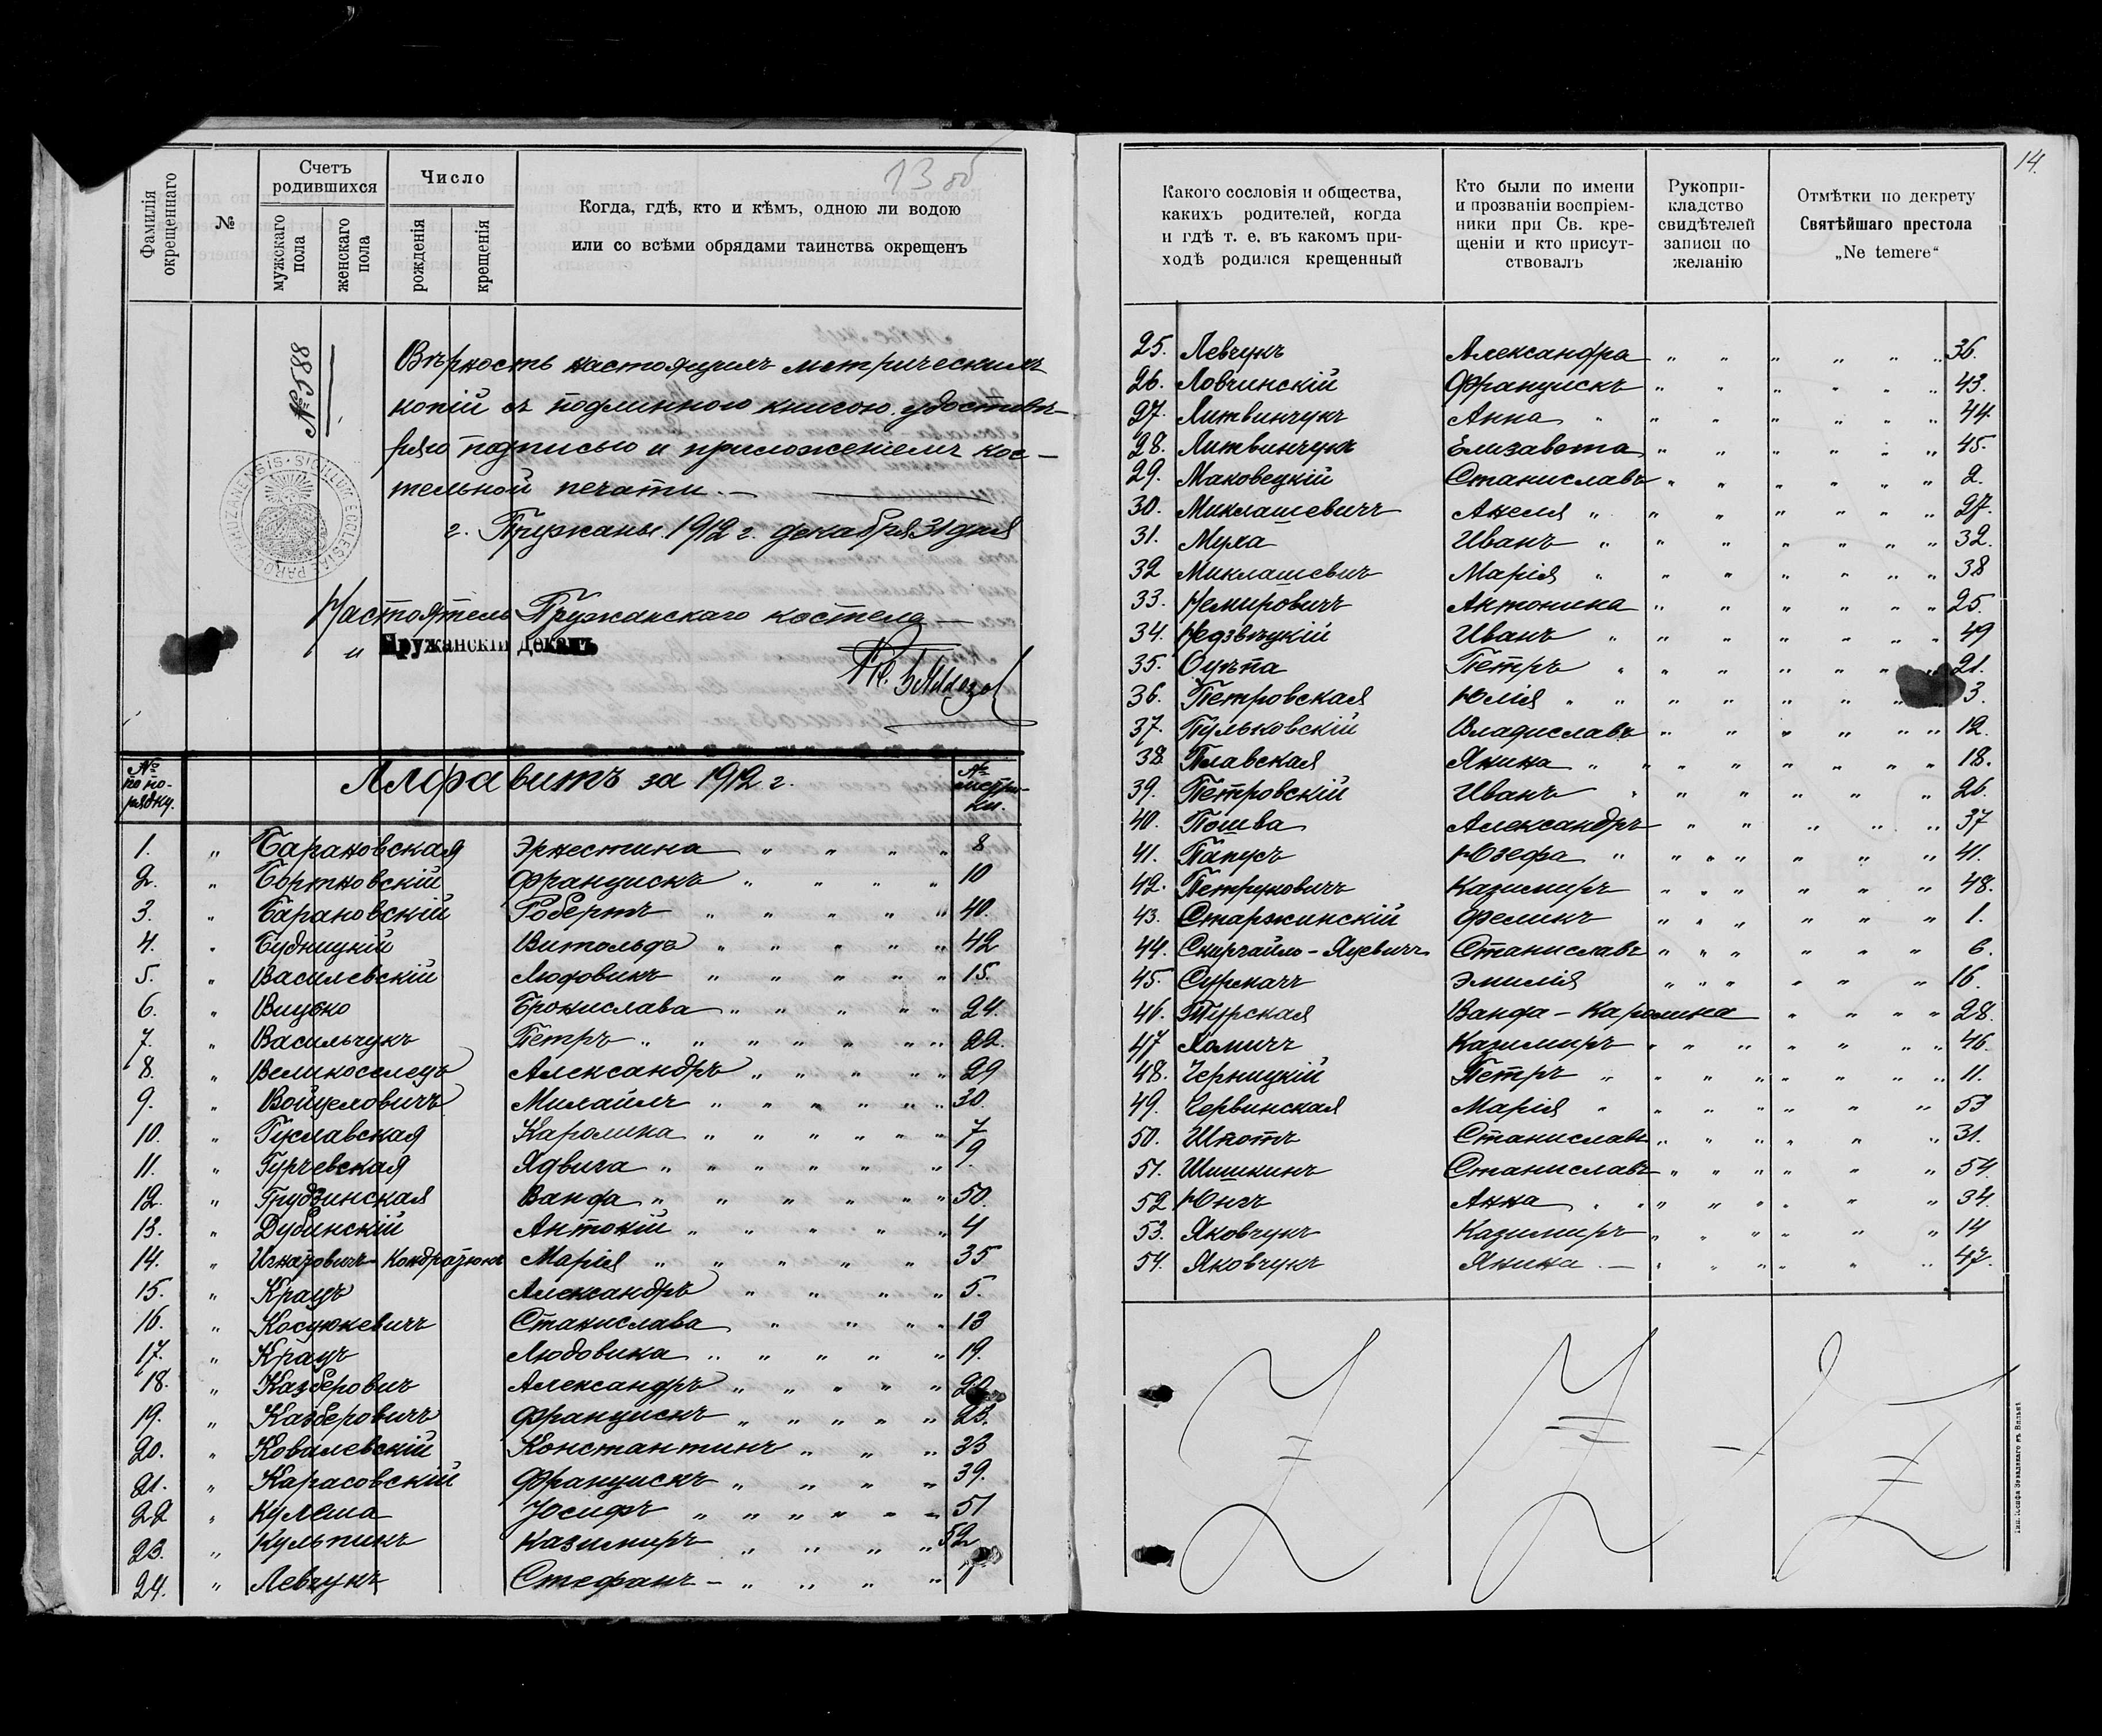 13 об
Фамилія окрещеннаго
№
Счетъ родившихся
мужскаго пола
женскаго пола
Число
рожденія
крещенія
Когда, гдѣ, кто и кѣмъ, одною ли водою
или со всѣми обрядами таинства окрещенъ
№ 588
Вѣрность настоящихъ метрическихъ
копій съ подлинною книгою удостовѣ-
ряю подписью и приложеніемъ кос-
тельной печати. —
г. Пружаны. 1912 г. декабря 31 дня
SIGILLUM ECCLESIAE PAROCH PRUZANENSIS
Настоятель Пружанскаго костела —
и Пружанскій деканъ
№ по по-
рядку.
Алфавитъ за 1912 г.
№ метри-
ки.
1. " Барановская Эрнестина " " " " 8
2. " Бортновскій Францискъ " " " " 10
3. " Барановскій Робертъ " " " " " 40.
4. " Будницкій Витольдъ " " " " " 42
5. " Василевскій Людовикъ " " " " " 15.
6. " Вицько Бронислава " " " " " 24.
7. " Васильчукъ Петръ " " " " " " " 22.
8. " Великоселецъ Александръ " " " " " 29
9. " Войцеловичъ Михаилъ " " " " " " 30.
10. " Гуславская Каролина " " " " " " " 7
11. " Гурчевская Ядвига " " " " " " 9.
12. " Грудзинская Ванда " " " " " " 50.
13. " Дубинскій Антоній " " " " " 4
14. " Игнатовичъ-Кондратюкъ Марія " " " " " 35
15. " Крацъ Александръ " " " " 5.
16. " Косцюкевичъ Станислава " " " " 13
17. " Крацъ Людовика " " " " " 19.
18. " Казберовичъ Александръ " " " " "
19. " Казберовичъ Францискъ " " " " " 23.
20. " Ковалевскій Константинъ " " " 33
21. " Карасовскій Францискъ " " " " 39.
22 " Кулеша Іосифъ " " " " " " 51
23. " Кульпинъ Казимиръ " " " " 52
24. " Левчукъ Стефанъ - " " " "
14.
Какого сословія и общества,
какихъ родителей, когда
и гдѣ т. е. въ какомъ при-
ходѣ родился крещенный
Кто были по имени
и прозваніи воспріем-
ники при Св. кре-
щеніи и кто присут-
ствовалъ
Рукопри-
кладство
свидѣтелей
записи по
желанію
Отмѣтки по декрету
Святѣйшаго престола
„Ne temere“
25. Левчукъ Александра " " " " " " 36.
26. Ловчинскій Францискъ " " " " " " 43.
27. Литвинчукъ Анна " " " " " " " 44.
28. Литвинчукъ Елизавета " " " " " " 45.
29. Маковецкій Станиславъ " " " " " " 2.
30. Миклашевичъ Анеля " " " " " " " 27.
31. Муха Иванъ " " " " " " " 32.
32 Миклашевичъ Марія " " " " " " " 38
33. Немировичъ Антонина " " " " " " 25.
34. Недзвѣцкій Иванъ " " " " " " " 49
35. Оцѣпа Петръ " " " " " " " 21.
36. Петровская Юлія " " " " " " " 3.
37. Пульковскій Владиславъ " " " " " " 12.
38 Плавская Янина " " " " " " " " 18.
39. Петровскій Иванъ " " " " " " 26.
40. Пошва Александръ " " " " " 37
41. Папусъ Юзефа " " " " " " " 41.
42. Петруковичъ Казимиръ " " " " " " 48.
43. Старжинскій Феликъ " " " " " " 1.
44. Скирчайло-Яцевичъ Станиславъ " " " " " " 6.
45. Сурмачъ Эмилія " " " " " " 16.
46. Турская Ванда - Каролина " " " " 28.
47 Хомичъ Казимиръ " " " " " " " 46.
48. Черницкій Петръ " " " " " " " " 11.
49. Червинская Марія " " " " " " " 53
50. Шпотъ Станиславъ " " " " " " 31.
51. Шишкинъ Станиславъ " " " " " " 54.
52 Юнсъ Анна " " " " " " " 34.
53. Яковчукъ Казимиръ " " " " " " 14
54. Яковчукъ Янина. — " " " " " " 47.
Тип. Іосифа Завадзкаго въ Вильнѣ